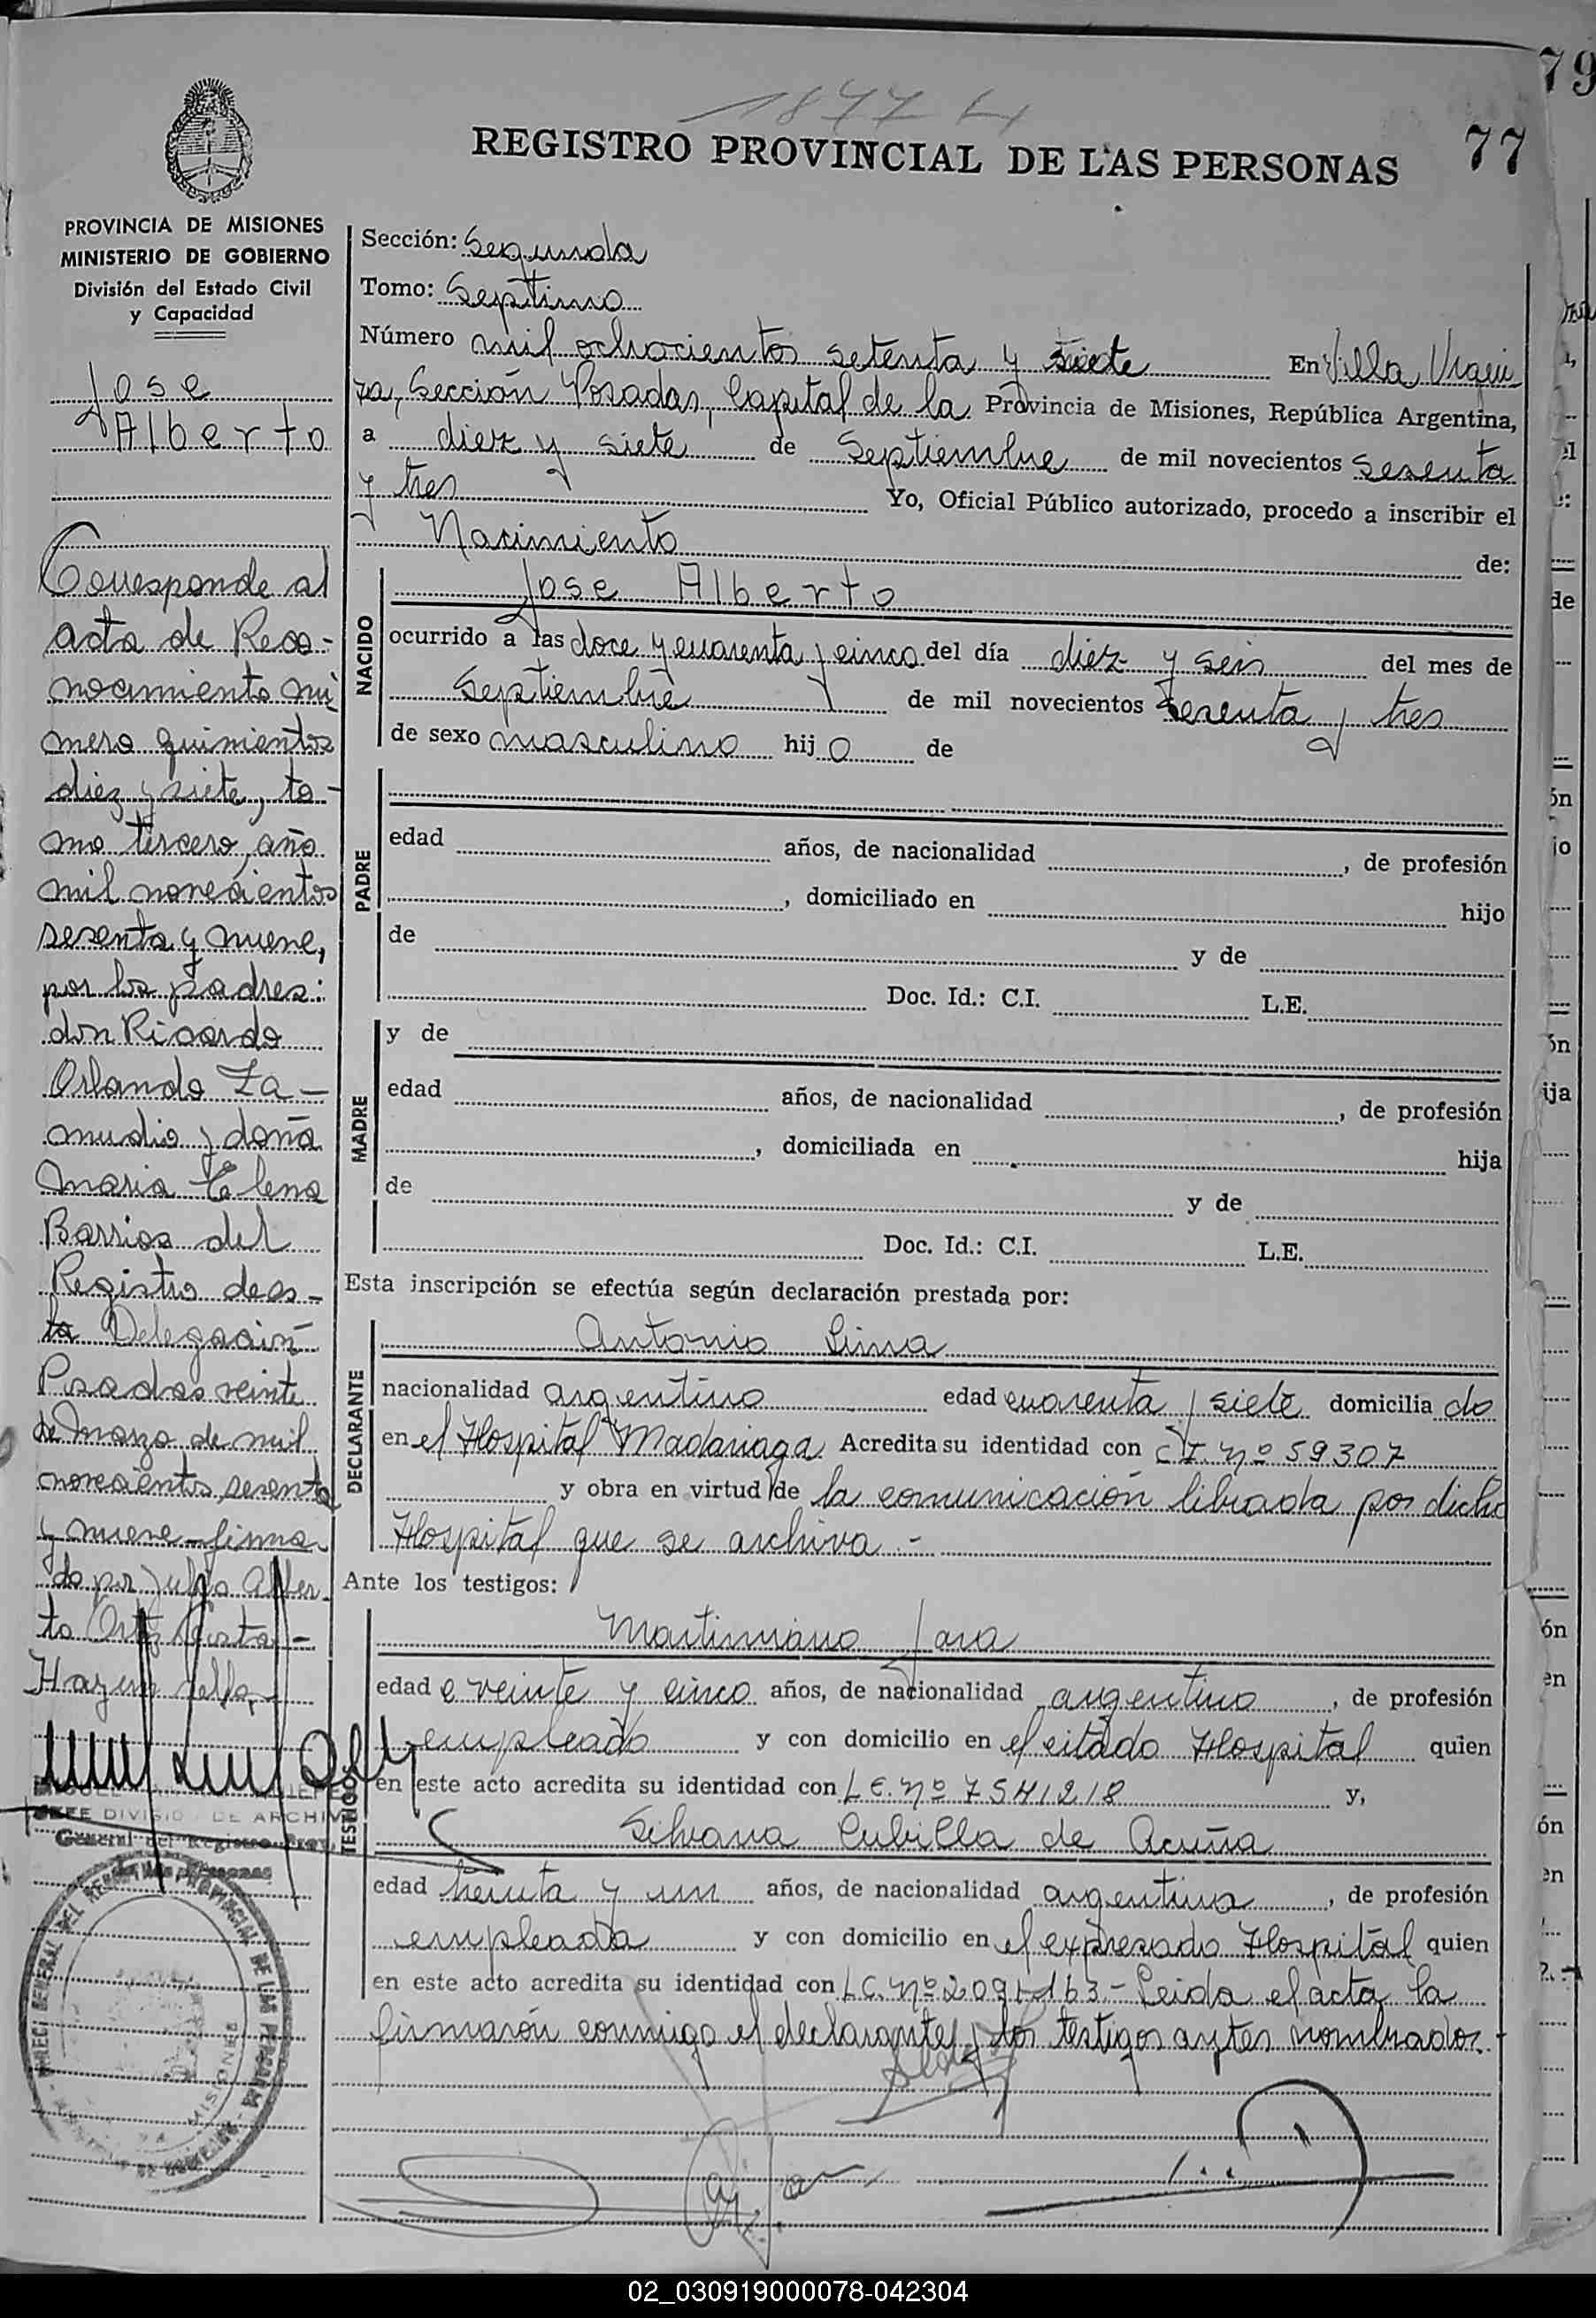 1877
79
77
REGISTRO PROVINCIAL DE LAS PERSONAS
PROVINCIA DE MISIONES
MINISTERIO DE GOBIERNO
División del Estado Civil
y Capacidad
Jose
Alberto
Corresponde al
acta de Reco-
nocimiento nú
mero quinientos
diez y siete, to-
mo tercero, año
mil novecientos
sesenta y nueve,
por los padres:
don Ricardo
Orlando Za-
mudio y doña
Maria Elena
Barrios del
Registro de es-
ta Delegación
Posadas veinte
de Marzo de mil
novecientos sesenta
y nueve - firma-
do por Julio Alber-
to Ortiz
Hay un sello
JEFE DIVISION DE ARCHIVO
General del Registro Prov.
de las Personas
Sección: Segunda
Tomo: Septimo
Número mil ochocientos setenta y siete En Villa Urqui
za, Sección Posadas, Capital de la Provincia de Misiones, República Argentina,
a diez y siete de Septiembre de mil novecientos sesenta
y tres Yo, Oficial Público autorizado, procedo a inscribir el
Nacimiento de:
NACIDO
Jose Alberto
ocurrido a las doce y cuarenta y cinco del día diez y seis del mes de
Septiembre de mil novecientos sesenta y tres
de sexo masculino hijo de
PADRE
edad años, de nacionalidad , de profesión
, domiciliado en hijo
de y de
Doc. Id.: C.I. L.E.
MADRE
y de
edad años, de nacionalidad , de profesión
, domiciliada en hija
de y de
Doc. Id.: C.I. L.E.
Esta inscripción se efectúa según declaración prestada por:
DECLARANTE
Antonio Lima
nacionalidad argentino edad cuarenta y siete domicilia do
en el Hospital Madariaga Acredita su identidad con C.I. nº 59307
y obra en virtud de la comunicación librada por dicho
Hospital que se archiva.-
Ante los testigos:
TESTIGOS
Martiniano Jara
edad veinte y cinco años, de nacionalidad argentino, de profesión
empleado y con domicilio en el citado Hospital quien
en este acto acredita su identidad con L.E. nº 7541218 y,
Silvana Cubilla de Acuña
edad treinta y un años, de nacionalidad argentina, de profesión
empleada y con domicilio en el expresado Hospital quien
en este acto acredita su identidad con L.C. nº 2091163 - Leida el acta, la
firmarón conmigo el declarante y los testigos antes nombrados.-
02_030919000078-042304